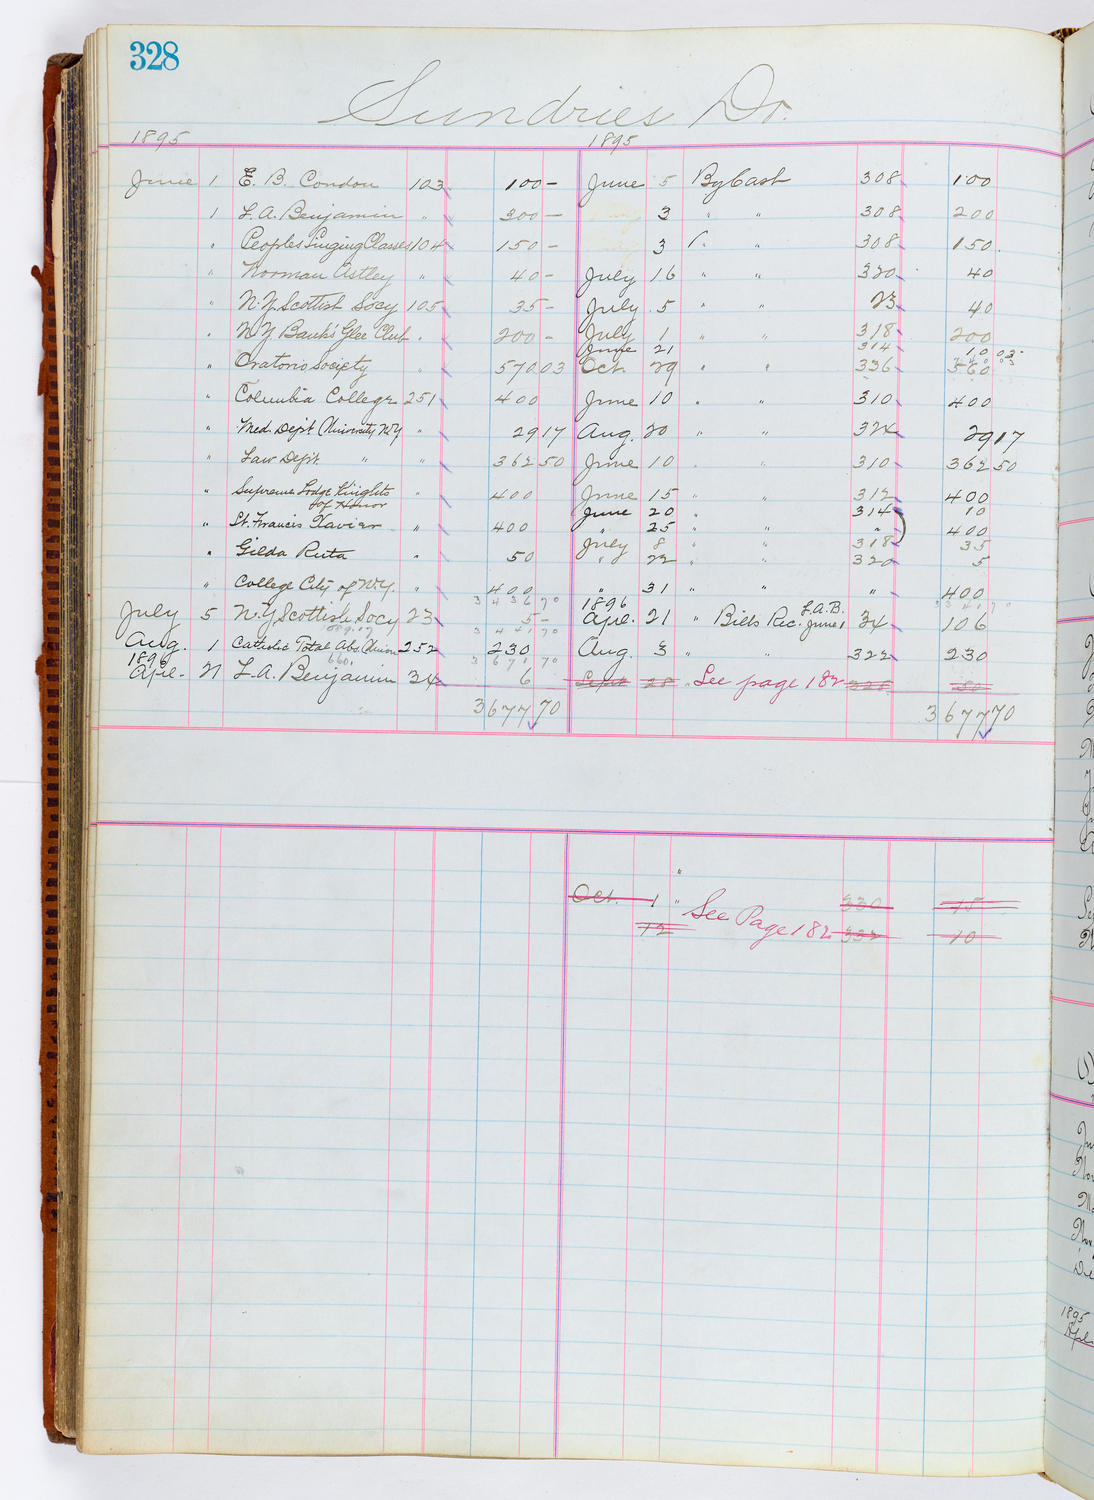 328
Sundries Dr.
1895 1895
June 1 E. B. Condon 103 100 – June 5 By Cash 308 100
1 L. A. Benjamin " 300 – 3 " " 308 200
" Peoples Singing Classes 104 150 – 3 " " 308 150.
" Norman Astley " 40 – July 16 " " 320 40
" N.Y. Scottish Socy 105 35 – July 5 " " 23 40
" N.Y. Banks' Glee Club " 200 – July 1 " " 318 200
June 21 314 10 03
" Oratorio Society " 570 03 Oct. 29 " " 336 560
" Columbia College 251 400 June 10 " " 310 400
" Med. Dept. University N.Y " 29 17 Aug. 20 " " 324 29 17
" Law Dept. " " 362 50 June 10 " " 310 362 50
" Supreme Lodge Knights " 400 June 15 " " 312 400
of Honor June 20 " 314 10
" St. Francis Xavier " 400 " 25 " " " 400
July 8 " " 318 35
" Gilda Ruta " 50 " 22 " " 320 5
" College City of N.Y. " 400 " 31 " " " 400
3 4 3 6 70 1896 L.A.B. 3 3 4 1 70
July 5 N.Y Scottish Socy 23 5 – Apl. 21 " Bills Rec. June 1 34 106
3 4 4 1 70
Aug. 1 Catholic Total Abs Union 252 230 Aug. 3 " " 322 230
1896 660. 3 6 7 1 70
Apl. 21 L. A. Benjamin 34 6 Sept 28 " See page 182 328 50
3677 70 3677 70
"
Oct. 1 " 330 15
See Page 182
12 332 10
1895